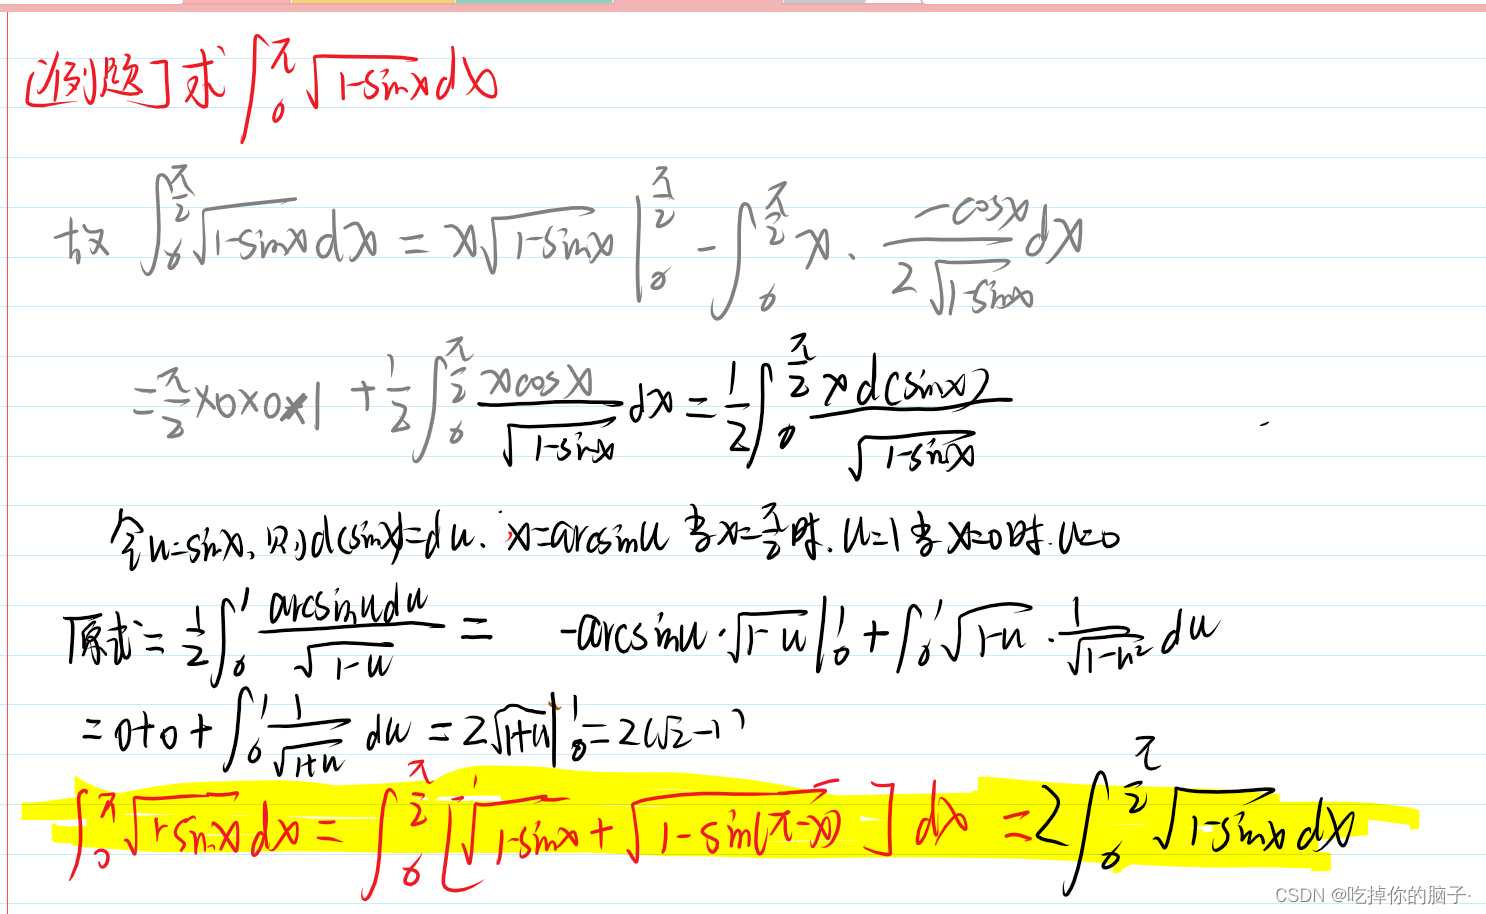 [例题] 求 ∫₀^π √(1-sinx) dx
故 ∫₀^(π/2) √(1-sinx) dx = x√(1-sinx) |₀^(π/2) - ∫₀^(π/2) x · (-cosx)/(2√(1-sinx)) dx
= π/2 × 0 × 0 × 1 + 1/2 ∫₀^(π/2) (xcosx)/√(1-sinx) dx = 1/2 ∫₀^(π/2) (x d(sinx))/√(1-sinx)
令u=sinx, 则d(sinx)=du. x=arcsinu 当x=π/2时. u=1 当x=0时. u=0
原式 = 1/2 ∫₀^1 (arcsinu du)/√(1-u) = -arcsinu · √(1-u) |₀^1 + ∫₀^1 √(1-u) · 1/√(1-u²) du
= 0+0+ ∫₀^1 1/√(1+u) du = 2√(1+u) |₀^1 = 2(√2-1)
∫₀^π √(1-sinx) dx = ∫₀^(π/2) [√(1-sinx) + √(1-sin(π-x))] dx = 2∫₀^(π/2) √(1-sinx) dx
CSDN @吃掉你的脑子·